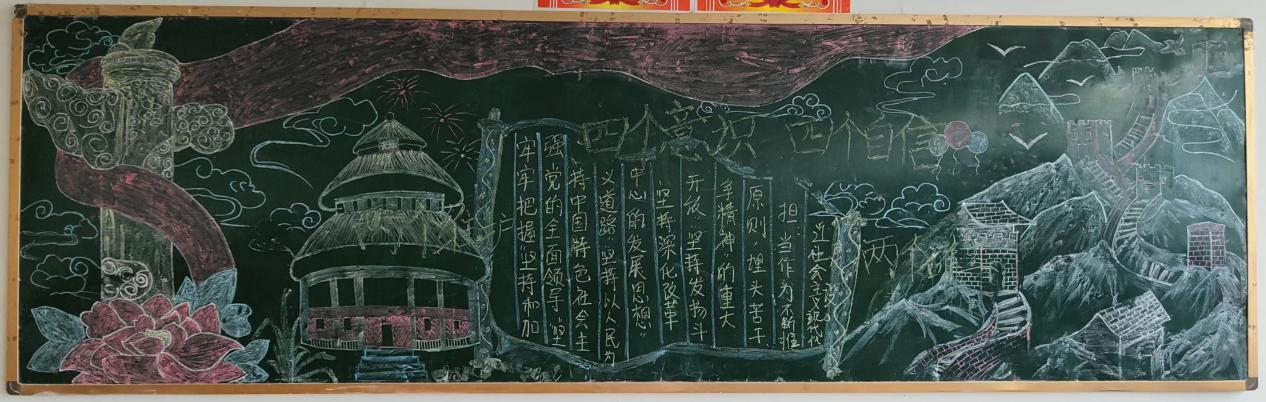 四个意识 四个自信
两个
牢牢把握坚持和加
强党的全面领导,坚
持中国特色社会主
义道路,坚持以人民为
中心的发展思想,
坚持深化改革
开放,坚持发扬斗
争精神"的重大
原则,埋头苦干
担当作为,不断推
进社会主义现代